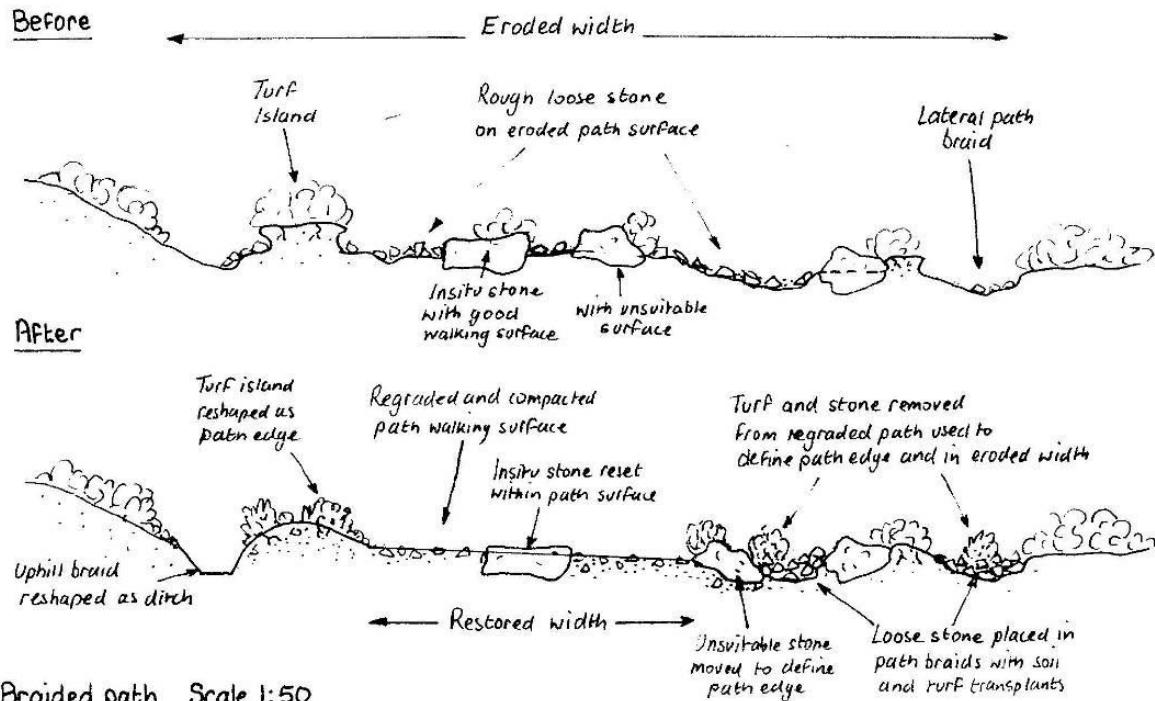 Before
Eroded width
Turf
Island
Rough loose stone
on eroded path surface
Lateral path
braid
Insitu stone
with good
walking surface
with unsuitable
surface
After
Turf island
reshaped as
path edge
Regraded and compacted
path walking surface
Insitu stone reset
within path surface
Turf and stone removed
from regraded path used to
define path edge and in eroded width
Uphill braid
reshaped as ditch
Restored width
Unsuitable stone
moved to define
path edge
Loose stone placed in
path braids with soil
and turf transplants
Braided path Scale 1:50